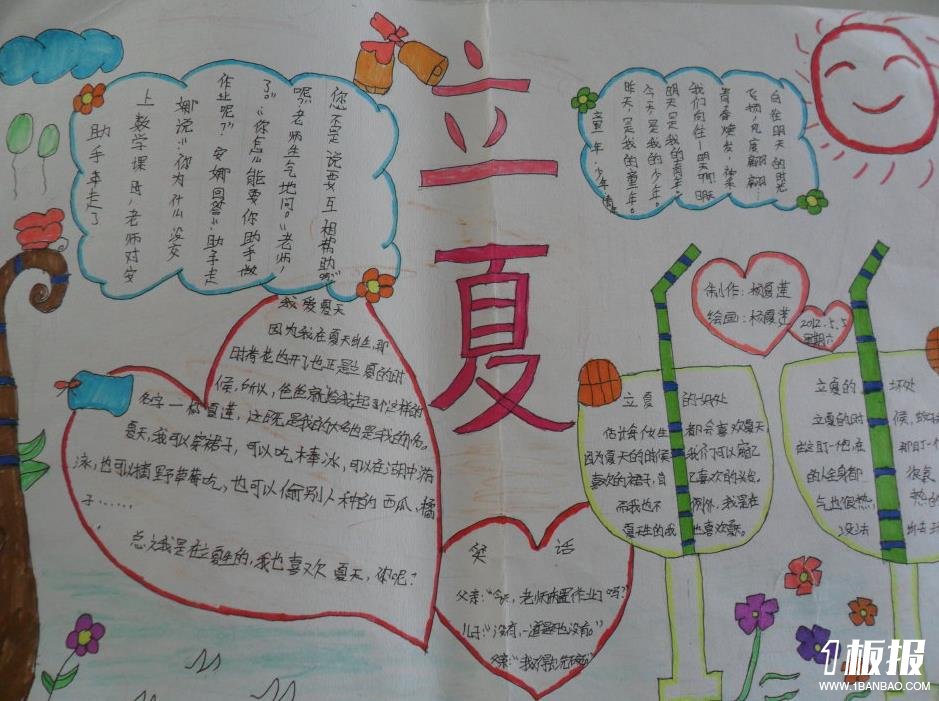 立夏
助手拿走了
上数学课时，老师对安
娜说：“你为什么没交
作业呢？”安娜回答：“助手走
了。”“你怎么能要你助手做
呢？”老师生气地问。“老师，
您不是说要互相帮助吗”
童年·少年
昨天，是我的童年。
今天，是我的少年。
明天是我的青年。
我们向往一明天啊！
青春焕发，
飞扬，风度翩翩——
白在明天的时光
我爱夏天
因为我在夏天出生，那
时荷花也开了也正是立夏的时
候，所以，爸爸就给我起了个这样的
名字—杨夏莲，这既是我的
夏天，我可以穿裙子，可以吃棒冰，可以在湖中游
泳，也可以摘野草莓吃，也可以偷别人种的西瓜，橘
子……
总之我是在立夏生的，我也喜欢夏天，你呢？
笑话
父亲：“今天，老师布置作业了吗？”
儿子：“没有，一道题也没有。”
父亲：
制作：杨夏莲
绘画：杨夏莲
2012.5.5
星期六
立夏的好处
估计多女生都会喜欢夏天
因为夏天的时候我们可以穿自己
喜欢的裙子，自己喜欢的
而我也不例外，我是在
夏天生的我也喜欢夏天。
立夏的坏处
立夏的时候，
的人全身都很臭
气也很热，
没法
1板报
WWW.1BANBAO.COM